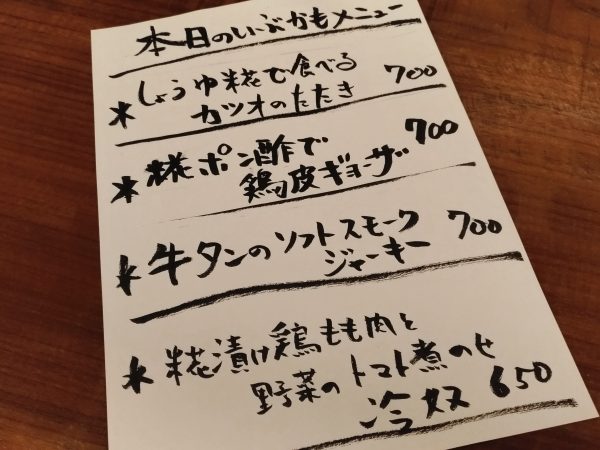 本日のいぶかもメニュー
＊しょうゆ糀で食べる
カツオのたたき 700
＊糀ポン酢で 700
鶏皮ギョーザ
＊牛タンのソフトスモーク 700
ジャーキー
＊糀漬け鶏もも肉と
野菜のトマト煮のせ
冷奴 650